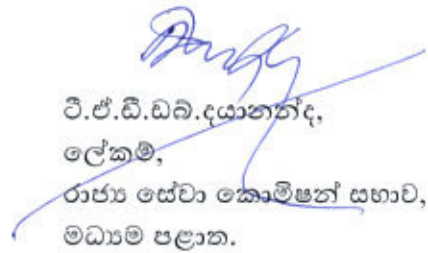 ටී.ඒ.ඩී.ඩබ්.දයානන්ද,
ලේකම්,
රාජ්‍ය සේවා කොමිෂන් සභාව,
මධ්‍යම පළාත.